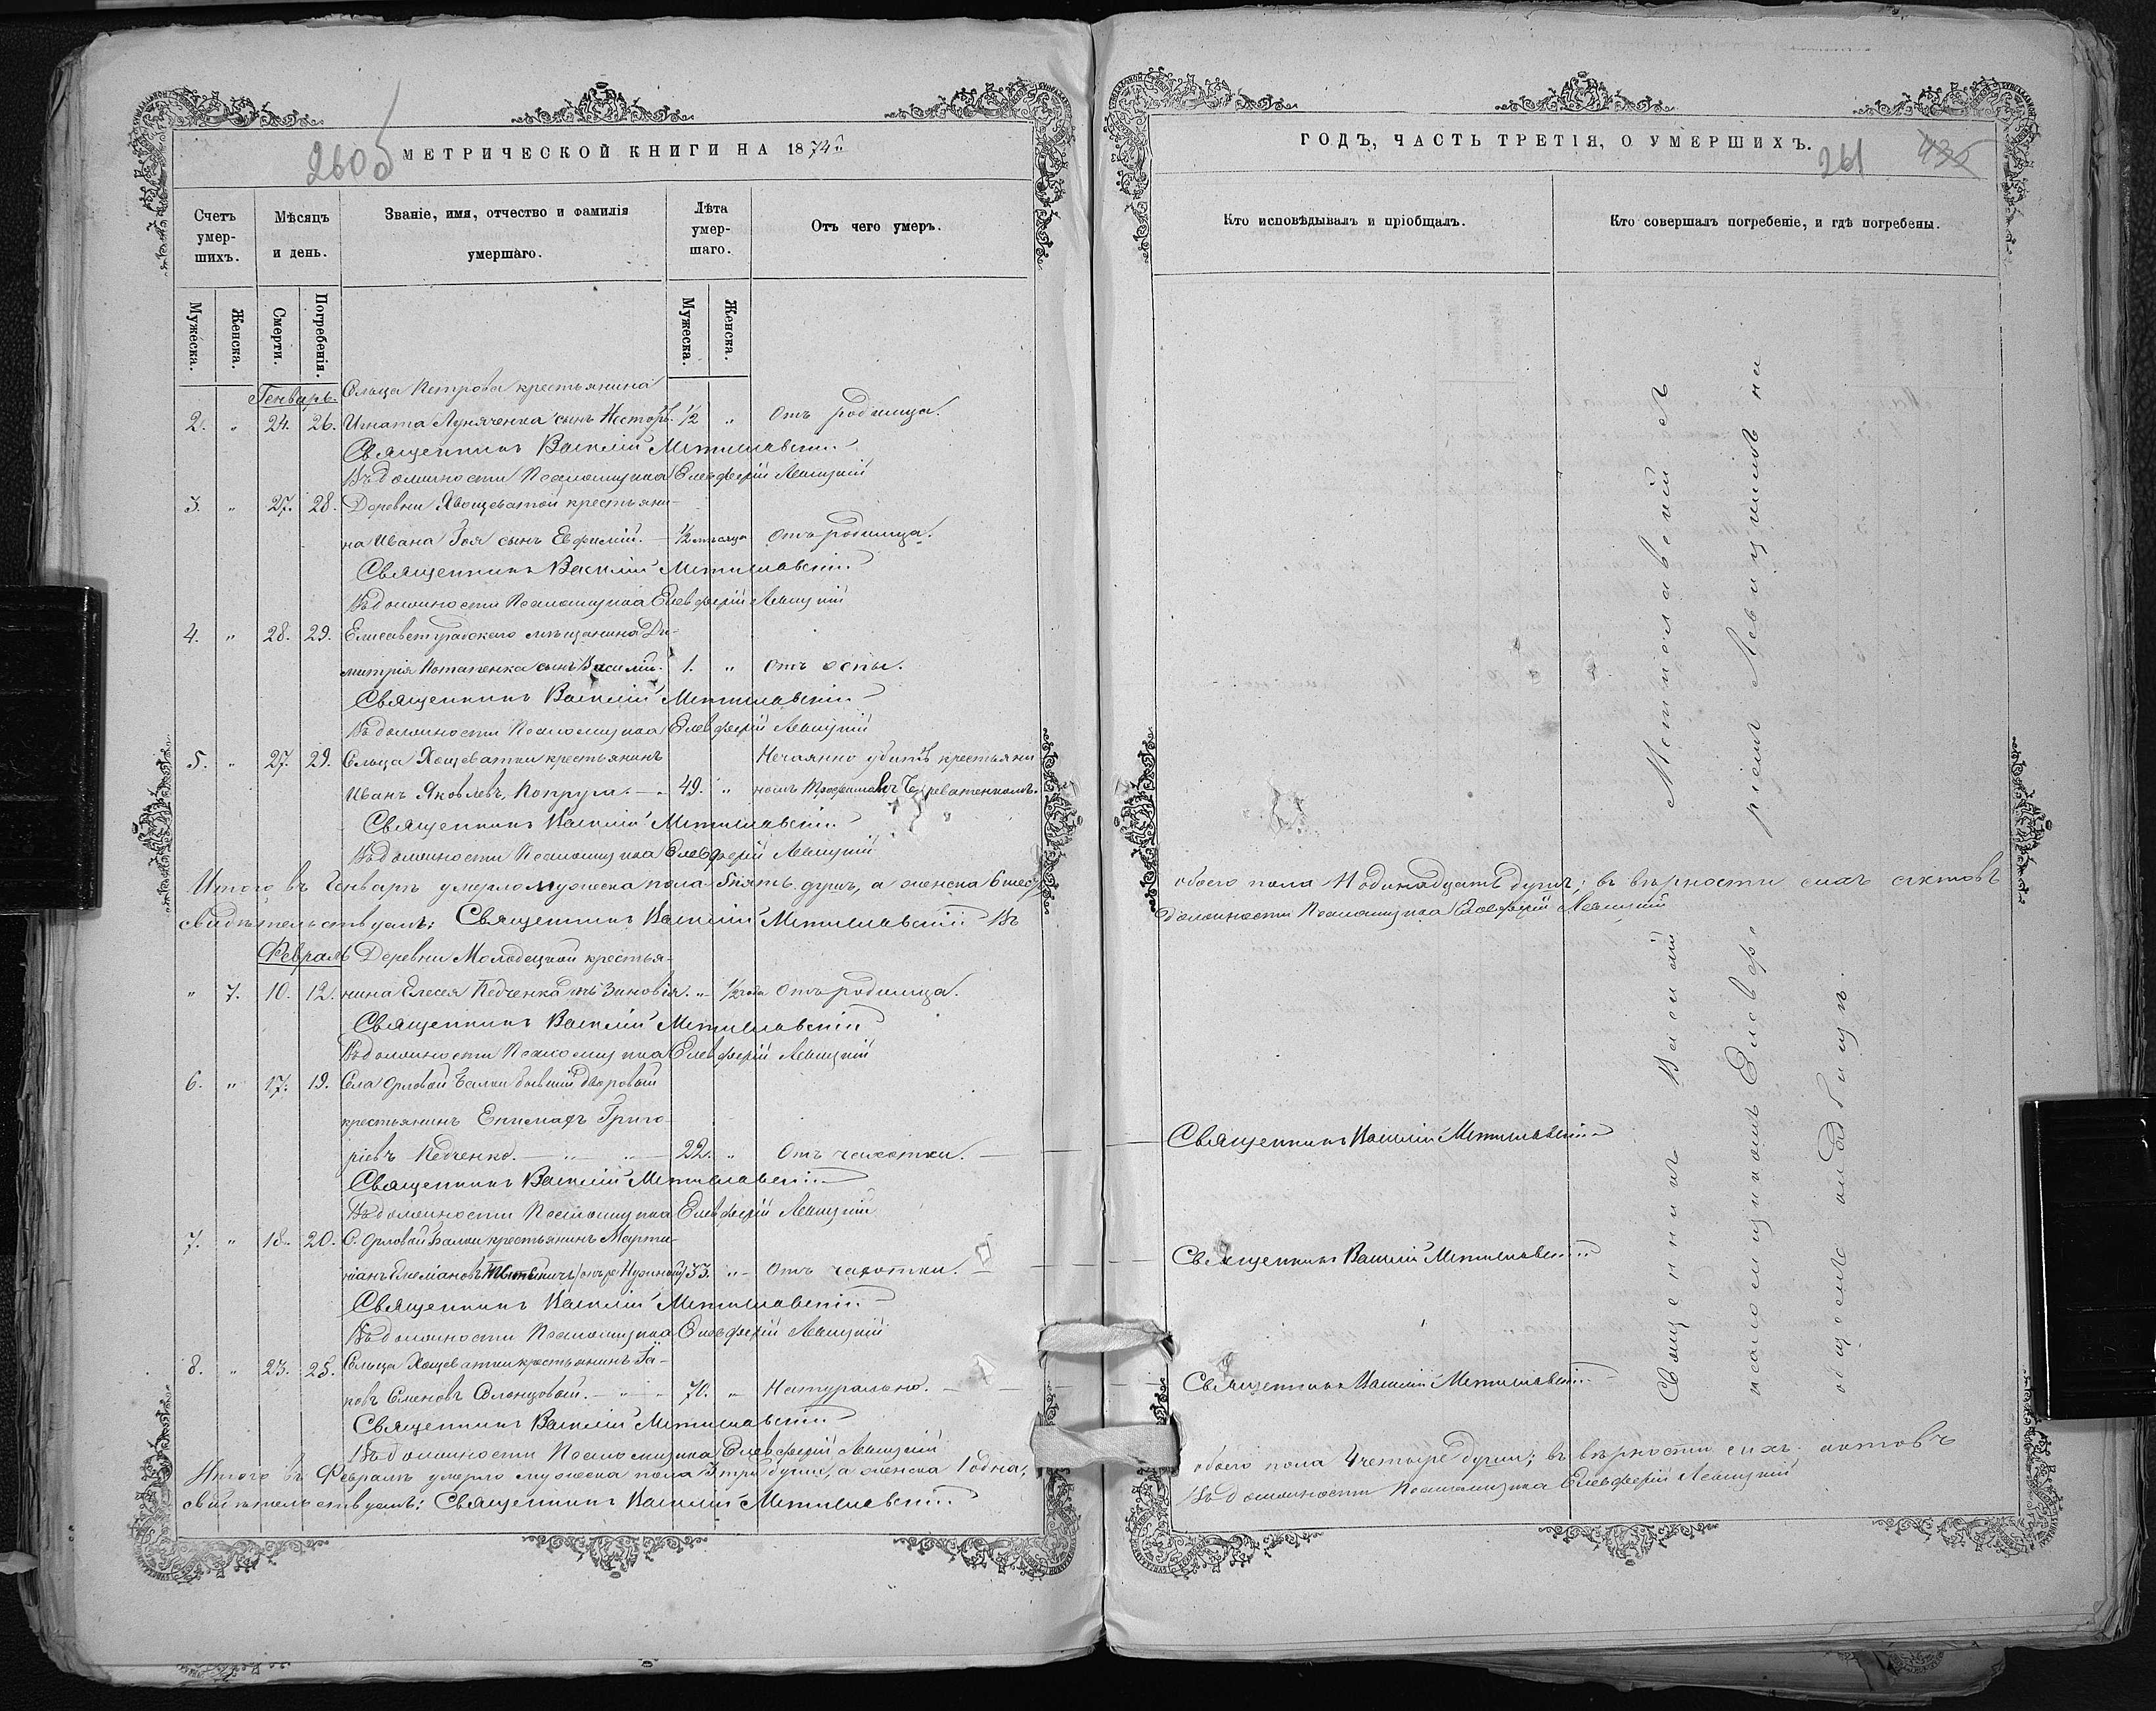 260б
МЕТРИЧЕСКОЙ КНИГИ НА 1874й
Счетъ умер-шихъ.
Мѣсяцъ и день.
Званіе, имя, отчество и фамилія умершаго.
Лѣта умер-шаго.
Отъ чего умеръ.
Мужеска. Женска. Смерти. Погребенія. Мужеска. Женска.
Генварь. Сельца Петрова крестьянина
2. " 24. 26. Игната Луняченка сынъ Несторъ. 1/2 " Отъ родимца.
Священникъ Василій Мстиславскій
Въ должности Псаломщика Елевферій Левицкій
3. " 27. 28. Деревни Хвощеватой крестьяни-
на Ивана Гоя сынъ Евфимій. 1/2 мѣсяца Отъ родимца.
Священникъ Василій Мстиславскій
Въ должности Псаломщика Елевферій Левицкій
4. " 28. 29. Елисаветградскаго мѣщанина Ди-
митрія Потапенка сынъ Василій. 1. " Отъ оспы.
Священникъ Василій Мстиславскій
Въ должности Псаломщика Елевферій Левицкій
5. " 27. 29. Сельца Хощеватки крестьянинъ Нечаянно убитъ крестьяни
Иванъ Яковлевъ 49. " номъ
Священникъ Василій Мстиславскій
Въ должности Псаломщика Елевферій Левицкій
Итого въ Генварѣ умерло мужеска пола 5 пять душъ, а женска 6 шесть,
свидѣтельствуемъ: Священникъ Василій Мстиславскій Въ
Февраль Деревни Молодецкой крестья-
" 7. 10. 12. нина Елесея Педченка дочь Зиновія. " 1/2 года Отъ родимца.
Священникъ Василій Мстиславскій
Въ должности Псаломщика Елевферій Левицкій
6. " 17. 19. Села Орловой Балки бывшій дворовый
крестьянинъ Епимахъ Григо
ріевъ Педченко. 22. " Отъ чахотки.
Священникъ Василій Мстиславскій
Въ должности Псаломщика Елевферій Левицкій
7. " 18. 20. С. Орловой Балки крестьянинъ Марти-
ніанъ 33. " Отъ чахотки.
Священникъ Василій Мстиславскій
Въ должности Псаломщика Елевферій Левицкій
8. " 23. 25. Сельца Хощеватки крестьянинъ Іа-
ковъ Сменовъ 70. " Натурально.
Священникъ Василій Мстиславскій
Въ должности Псаломщика Елевферій Левицкій
Итого въ Февралѣ умерло мужеска пола 3 три души, а женска 1 одна,
свидѣтельствуемъ: Священникъ Василій Мстиславскій
ГОДЪ, ЧАСТЬ ТРЕТІЯ, О УМЕРШИХЪ.
261 435
Кто исповѣдывалъ и пріобщалъ.
Кто совершалъ погребеніе, и гдѣ погребены.
обоего пола 11 одинадцать душъ; въ вѣрности сихъ актовъ
должности Псаломщика Елевферій Левицкій
Священникъ Василій Мстиславскій
Священникъ Василій Мстиславскій
Священникъ Василій Мстиславскій
Священникъ Василій Мстиславскій съ
псаломщикомъ Елевферіемъ Левицкимъ на
общемъ кладбищѣ.
обоего пола 4 четыре души; въ вѣрности сихъ актовъ
Въ должности Псаломщика Елевферій Левицкій